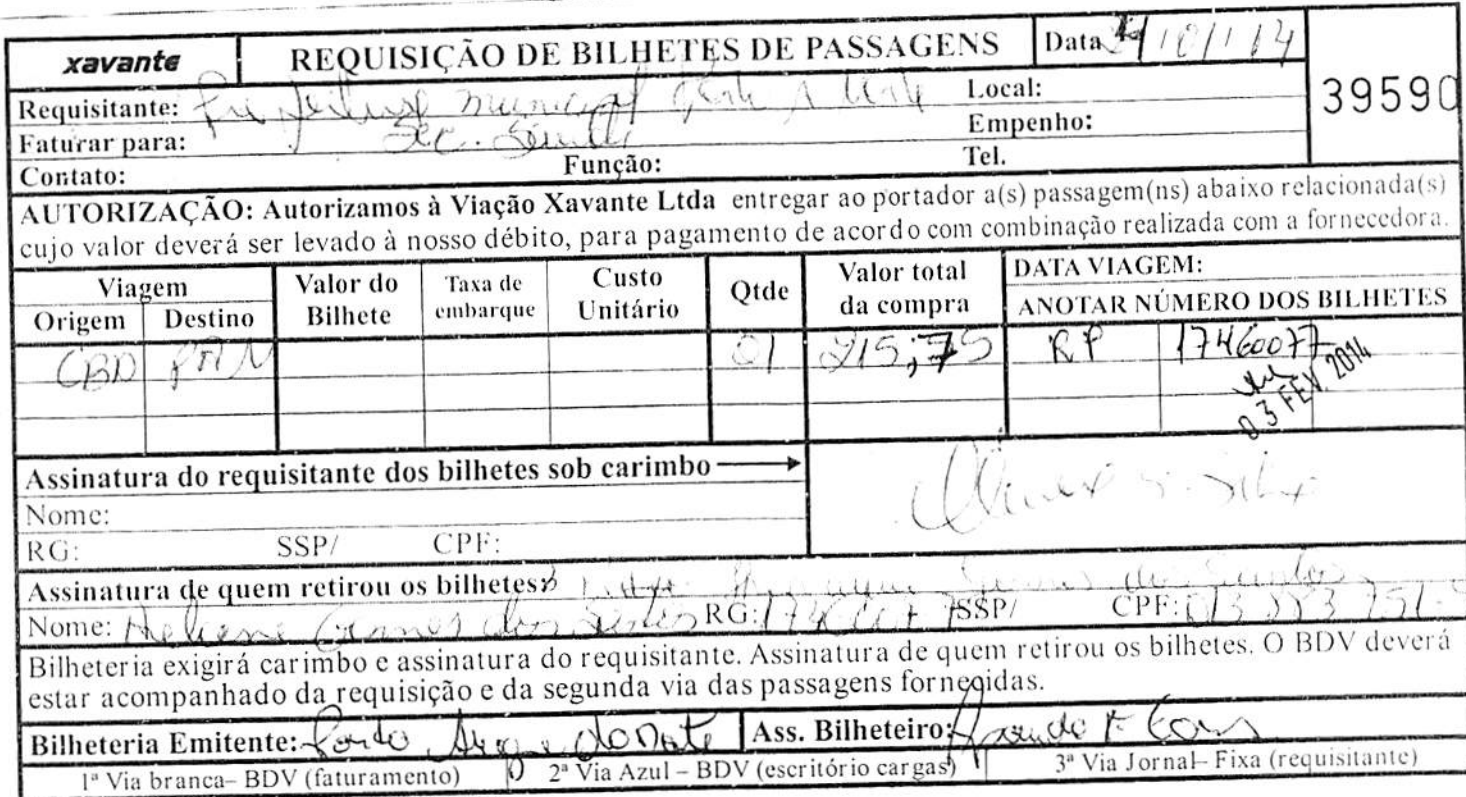 xavante REQUISIÇÃO DE BILHETES DE PASSAGENS Data 10/1/14
39590
Requisitante: Prefeitura municipal Local:
Faturar para: Sec. Empenho:
Contato: Função: Tel.
AUTORIZAÇÃO: Autorizamos à Viação Xavante Ltda entregar ao portador a(s) passagem(ns) abaixo relacionada(s)
cujo valor deverá ser levado à nosso débito, para pagamento de acordo com combinação realizada com a fornecedora.
Viagem Valor do Bilhete Taxa de embarque Custo Unitário Qtde Valor total da compra DATA VIAGEM:
Origem Destino ANOTAR NÚMERO DOS BILHETES
CBD PAN 01 215,75 RP 17460077
03 FEV 2014
Assinatura do requisitante dos bilhetes sob carimbo
Nome:
RG: SSP/ CPF:
Assinatura de quem retirou os bilhetes: dos Santos
Nome: dos Santos RG: SSP/ CPF:
Bilheteria exigirá carimbo e assinatura do requisitante. Assinatura de quem retirou os bilhetes. O BDV deverá
estar acompanhado da requisição e da segunda via das passagens fornecidas.
Bilheteria Emitente: Porto Alegre do Norte Ass. Bilheteiro:
1ª Via branca– BDV (faturamento) 2ª Via Azul – BDV (escritório cargas) 3ª Via Jornal– Fixa (requisitante)